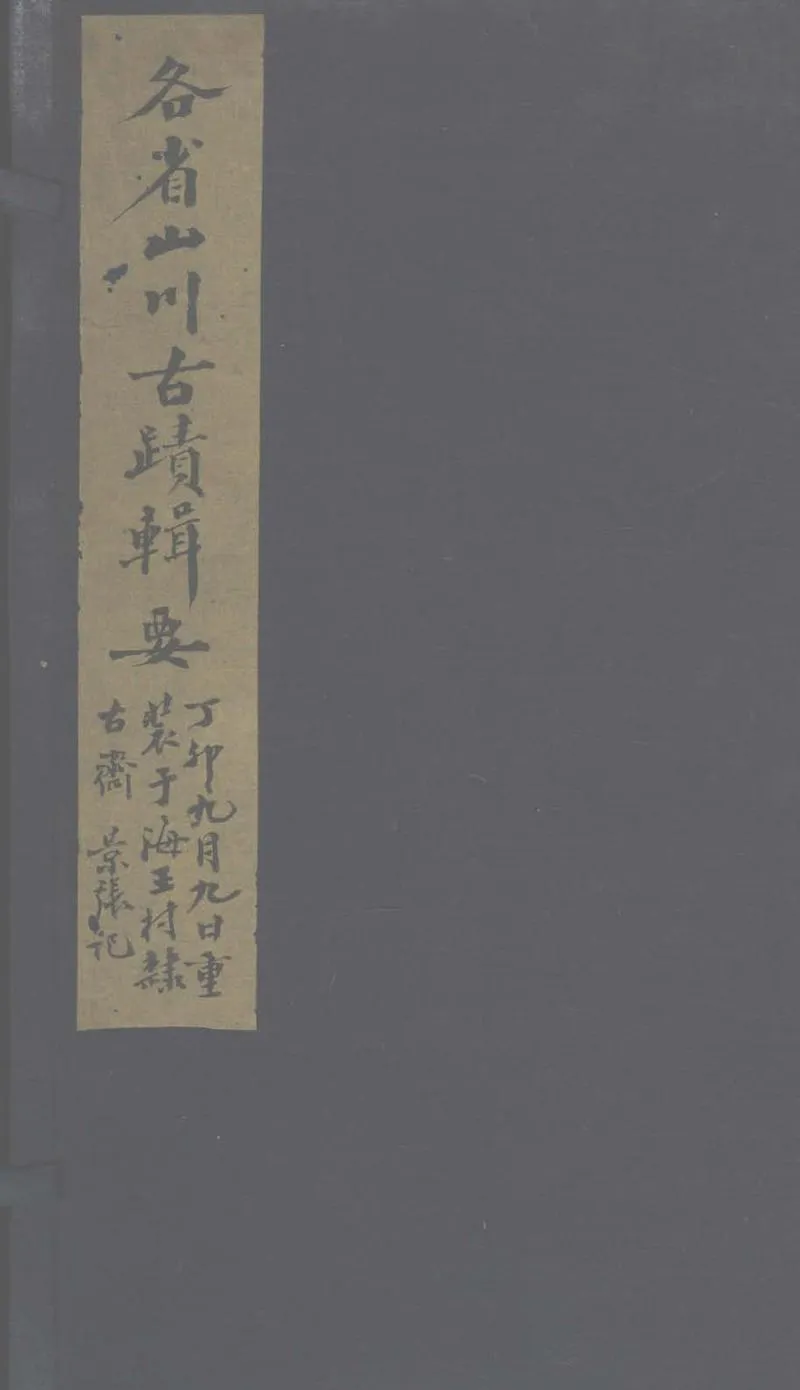 各省山川古蹟輯要
丁卯九月九日重
裝于海王村隸
古齋 景張記